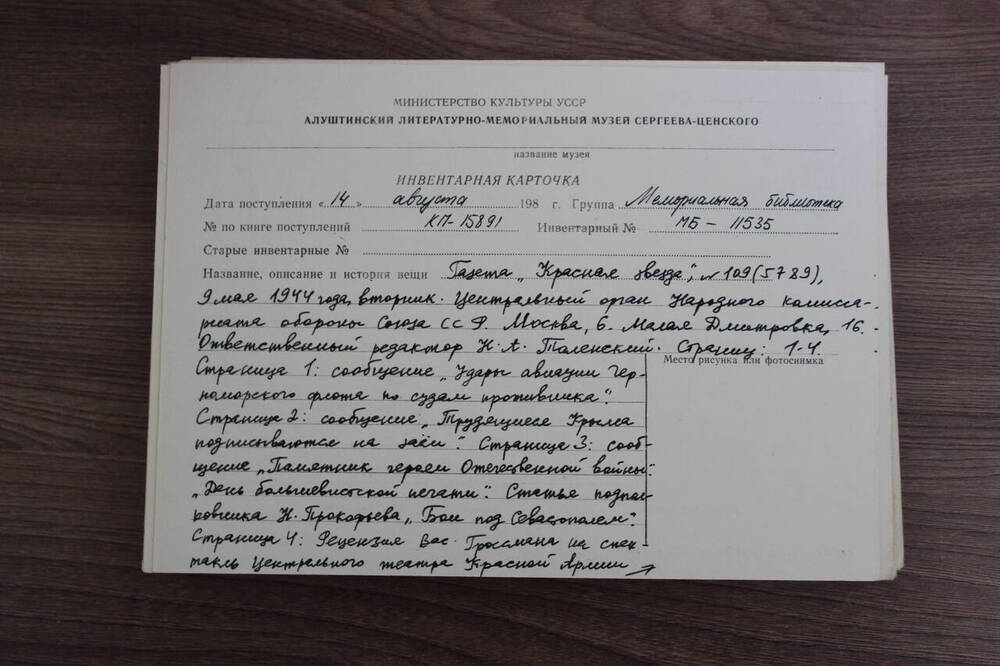 МИНИСТЕРСТВО КУЛЬТУРЫ УССР
АЛУШТИНСКИЙ ЛИТЕРАТУРНО-МЕМОРИАЛЬНЫЙ МУЗЕЙ СЕРГЕЕВА-ЦЕНСКОГО
название музея
ИНВЕНТАРНАЯ КАРТОЧКА
Дата поступления «14» августа 198 г. Группа Мемориальная библиотека
№ по книге поступлений КП-15891 Инвентарный № МБ – 11535
Старые инвентарные №
Название, описание и история вещи Газета „Красная звезда", № 109 (5789),
9 мая 1944 года, вторник. Центральный орган Народного комисса-
риата обороны Союза ССР. Москва, 6. Малая Дмитровка, 16.
Ответственный редактор Н. А. Таленский. Страниц: 1-4.
Место рисунка или фотоснимка
Страница 1: сообщение „Удары авиации Чер-
номорского флота по судам противника".
Страница 2: сообщение „Трудящиеся Крыма
подписываются на заём". Страница 3: сооб-
щение „Памятник героям Отечественной войны".
„День большевистской печати". Статья подпол-
ковника Н. Прокофьева „Бои под Севастополем".
Страница 4: Рецензия Вас. Гроссмана на спек-
такль Центрального театра Красной Армии →